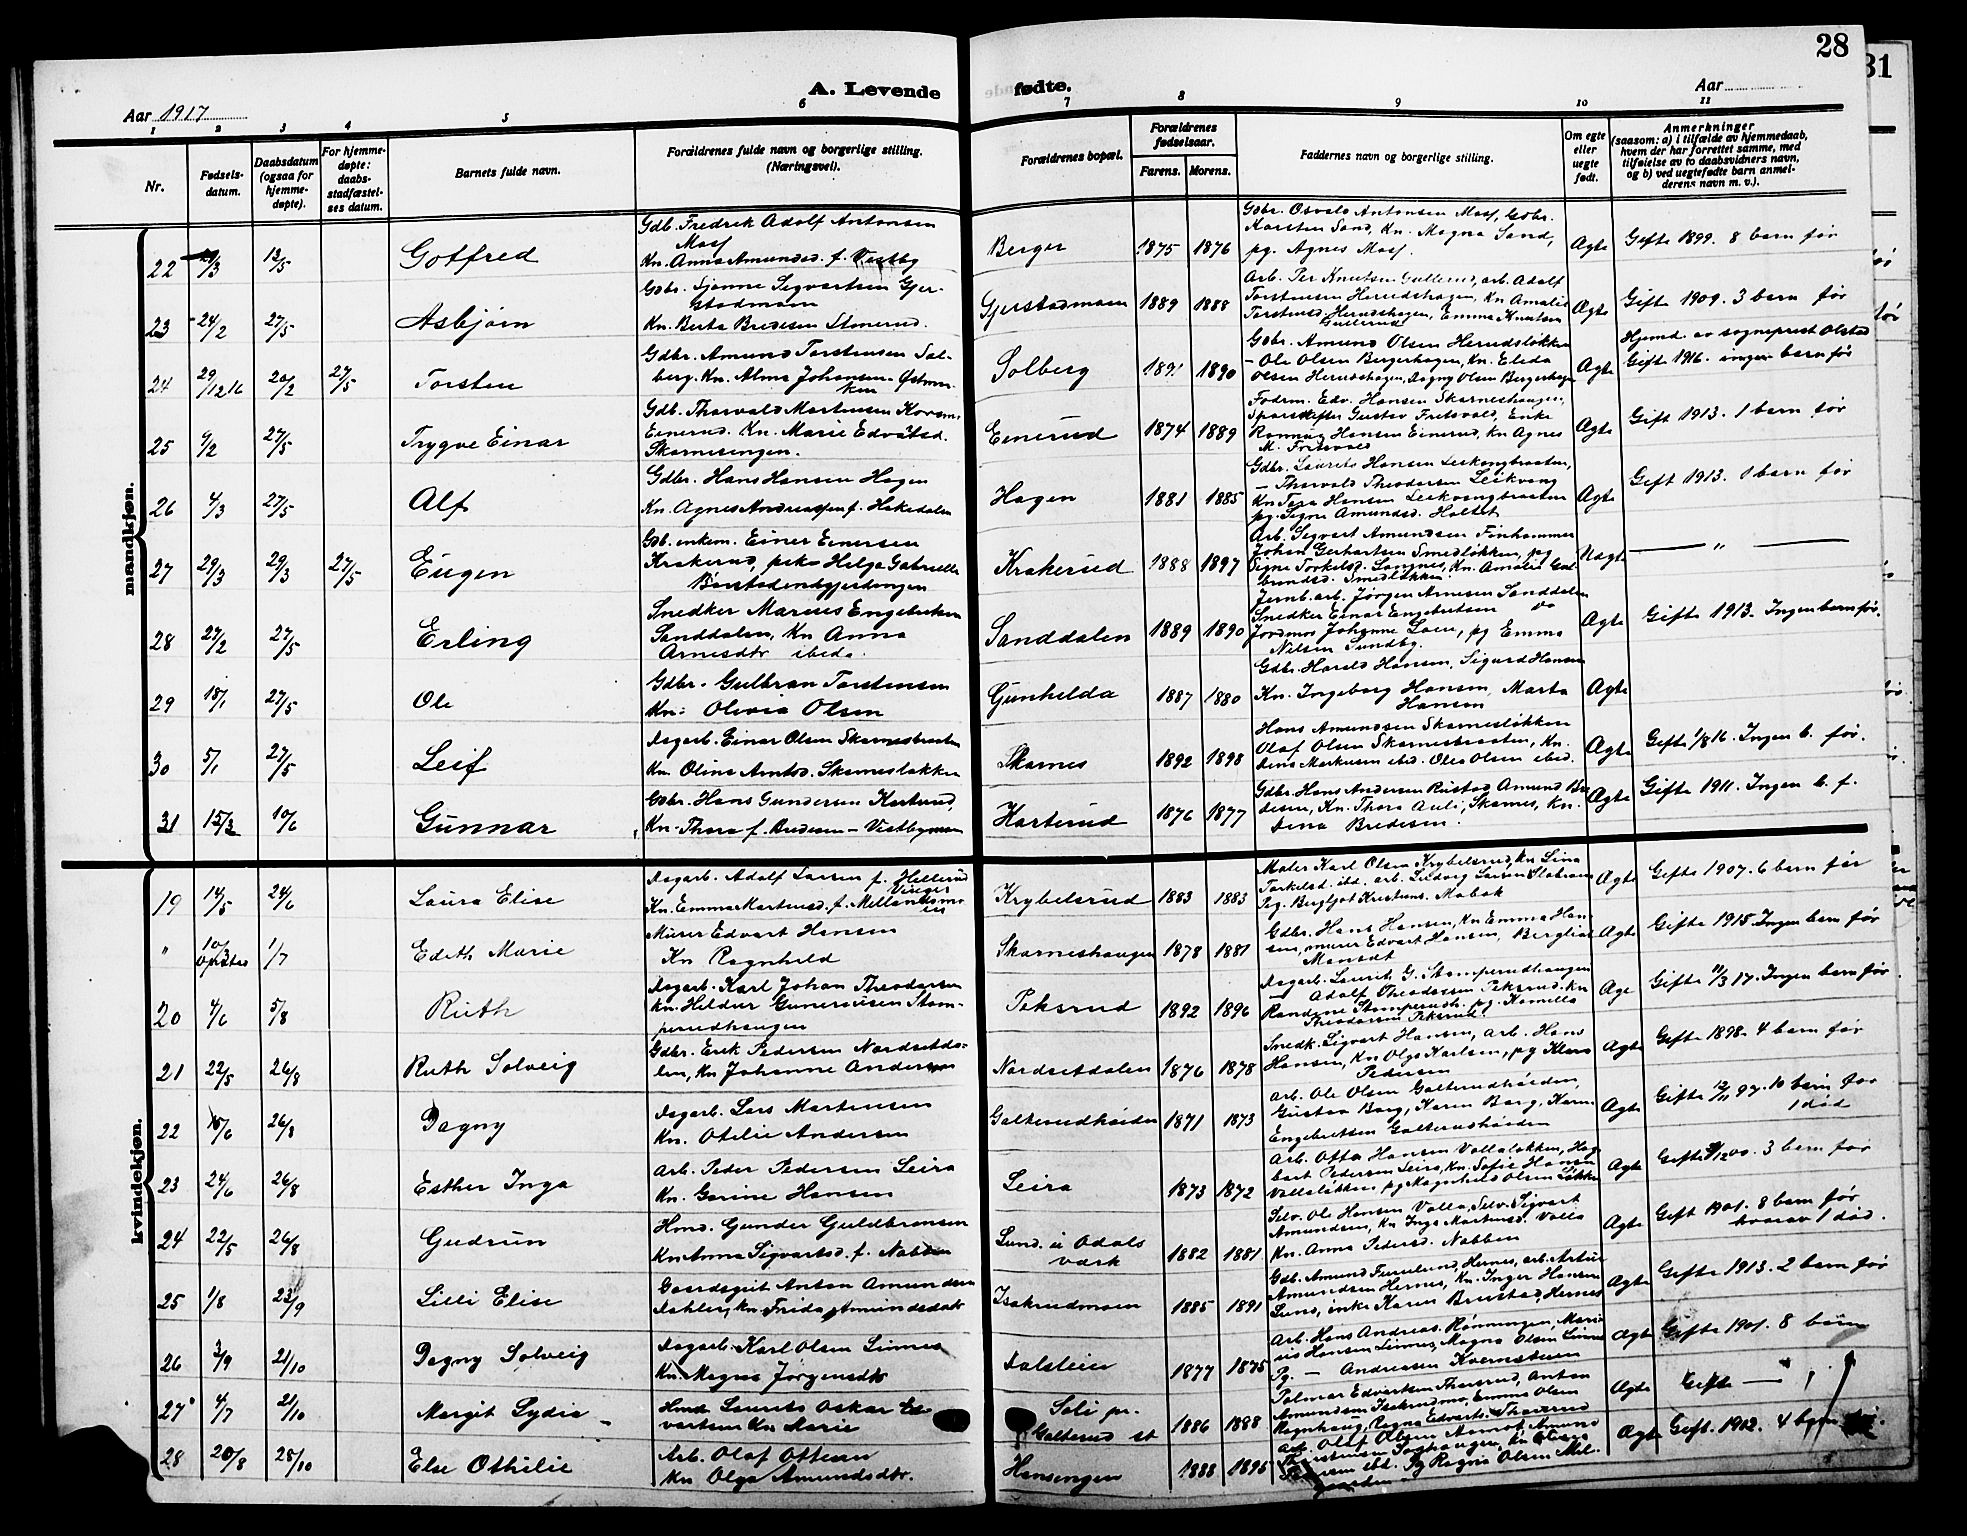 28
31
A. Levende fødte.
Aar 1917
Aar
1 2 3 4 5 6 7 8 9 10 11
Nr.
Fødsels-
datum.
Daabsdatum
(ogsaa for
hjemme-
døpte).
For hjemme-
døpte:
daabs-
stadfæstel-
ses datum.
Barnets fulde navn.
Forældrenes fulde navn og borgerlige stilling.
(Næringsvei).
Forældrenes bopæl.
Forældrenes
fødselsaar.
Farens. Morens.
Faddernes navn og borgerlige stilling.
Om egte
eller
uegte
født.
Anmerkninger
(saasom: a) i tilfælde av hjemmedaab,
hvem der har forrettet samme, med
tilføielse av to daabsvidners navn,
og b) ved uegtefødte barn anmel-
derens navn m. v.).
mandkjøn.
22 /3 13/5 Gotfred
Gdb. Fredrik Adolf Antonsen
Moss
Kn. Anna Amundsd. f. Vestby
Berger 1875 1876
Gdbr. Osvald Antonsen Moss, Gdbr.
Karsten Sand, Kn. Magna Sand,
pg. Agnes Moss.
Ægte Gifte 1899. 8 barn før
23 24/2 27/5 Asbjørn
Gdbr. Sigvartsen Gjer-
stadmoen
Kn. Berta Bredesen Stenerud.
Gjerstadmoen 1889 1888
Arb. Per Knutsen Gullerud, arb. Adolf
Torstensen Herudshagen, Kn Amalie
Torstensd. Herudshagen, Emma Knutsen
Gullerud
Ægte Gifte 1909. 3 barn før
24 29/12 16 20/2 27/5 Torsten
Gdbr. Amund Torstensen Sol-
berg. Kn. Alma Johansen Østmar-
ken
Solberg 1891 1890
Gdbr. Amund Olsen Herudsløkken
- Ole Olsen Bergerhagen, Kn. Elida
Olsen Herudshagen, Dagny Olsen Bergerhagen
Ægte
Hjemd. av sogneprest Olstad
Gifte 1916. ingen barn før
25 9/2 27/5 Trygve Einar
Gdb. Thorvald Martinsen
Einerud. Kn. Marie Edvardsd.
Skarnesengen.
Einerud 1874 1889
Fodrm. Edv. Hansen Skarneshaugen,
Gustav Fritsvold, Enke
Hansen Einerud, Kn Agnes
M. Fritsvold
Ægte Gift 1913. 1 barn før
26 4/3 27/5 Alf
Gdbr. Hans Hansen Hagen
Kn. Agnes Andreassen f. Hakedalen
Hagen 1881 1885
Gdbr. Laurits Hansen Leskangbraaten,
- Thorvald Theodorsen Leikvang
Kn Tora Hansen
pg. Signe Amundsd. Holtet
Ægte Gift 1913. 0 barn før
27 29/3 29/3 27/5 Eugen
Gdb. enkem. Einer Einersen
Krakerud, pike Helga Gabrielle
Krakerud 1888 1897
Arb. Sigvart Amundsen Finhammer
Johan Gerhartsen Smedløkken, pg
Signe Torkelsd. Langnes, Kn. Amalie Gul-
brandsd. Smedløkken
Uægte — " —
28 27/2 27/5 Erling
Snedker Marius Engebretsen
Sanddalen, Kn Anna
Arnesdtr ibid.
Sanddalen 1889 1890
Jernb. arb. Jørgen Arnesen Sanddalen
Snedker Einar Engebretsen do
Jordmor Johanne Loen, pg Emma
Nilsen Sundby.
Ægte Gifte 1913. Ingen barn før.
29 18/1 27/5 Ole
Gdbr. Gulbran Torstensen
Kn: Olivia Olsen
Gunhilda 1887 1880
Gdbr. Harald Hansen, Sigurd Hansen
Kn. Ingeborg Hansen, Marta
Hansen
Ægte
30 5/1 27/5 Leif
Dagarb. Einar Olsen Skarnesbraaten
Kn. Olina Amtsd. Skarnesløkken
Skarnes 1892 1898
Hans Amundsen Skarnesløkken
Olaf Olsen Skarnesbraaten, Kn.
Dina Markusen ibid. Olea Olsen ibid.
Ægte Gifte 1/8 16. Ingen b. før.
31 15/3 10/6 Gunnar
Gdbr. Hans Gundersen Karterud,
Kn. Thora f. Bredesen - Vestbymoen
Harterud 1876 1877
Gdbr. Hans Andersen Rustad Amund Bre
desen, Kn. Thora Auli, Skarnes, Kn.
Dina Bredesen.
Ægte Gifte 1911. Ingen b. f.
kvindekjøn.
19 14/5 24/6 Laura Elise
Dagarb. Adolf Larsen f. Hellerud
Vinger
Kn. Emma Martinsd. f.
Krybelsrud 1883 1883
Maler Karl Olsen Krybelsrud, Kn Lina
Torkelsd. ibd. arb. Ludvig Larsen
Pg. Bergljot Kristians. Mabak
Ægte Gifte 1907. 6 barn før
" 10/3 1/7 Edith Marie
Murer Edvart Hansen
Kn Ragnhild
Skarneshaugen 1878 1881
Gdbr. Hans Hansen, Kn Emma Han-
sen, murer Edvart Hansen, Bergliot
Ægte Gifte 1915 Ingen barn før
20 4/6 5/8 Ruth
Dagarb. Karl Johan Theodorsen
Kn. Heldur Gunerusen Stom-
perudhaugen
Peksrud 1892 1896
Dagarb. Laurits G. Stomperudhaugen
- Adolf Theodorsen Peksrud, Kn
Randine Stomperudh. pg. Kamilla
Theodorsen Peksrud
Æge Gifte 11/3 17. Ingen barn før
21 22/5 26/8 Ruth Solveig
Gdbr. Erik Pedersen Nordsetda-
len, Kn Johanne Andersen
Nordsetdalen 1876 1878
Snedk. Sigvart Hansen, Arb. Hans
Hansen, Kn Olga Karlsen, pg Klara
Pedersen
Ægte Gifte 1898. 4 barn før
22 /6 26/8 Dagny
Dagarb. Lars Martinsen
Kn. Otilie Andersen
Galterudhøiden 1871 1873
arb. Ole Olsen Galterudhøiden,
Gustav Borg, Karen Borg, Karen
Engebretsen Galterudhøiden
Ægte Gifte 12/11 97. 10 barn før
1 død
23 24/6 26/8 Esther Inga
Arb. Peder Pedersen Leira
Kn. Gerine Hansen
Leira 1873 1872
Arb. Otto Hansen Valløkken, Hag-
bart Pedersen Leira, Kn. Sofie Hansen
pg Magnhild Olsen Løkken
Ægte Gifte /12 00. 3 barn før
24 22/5 26/8 Gudrun
Hmd. Gunder Guldbransen
Kn Anna Sigvartsd. f. Nabben
Sund. i Odals
værk
1882 1881
Selv. Ole Hansen Volla, Selv. Sigvart
Amundsen, Kn Inga Martinsd. Volla
Kn. Anna Pedersd. Nabben
Ægte Gift 1901. 8 barn før
hvorav 1 død.
25 1/8 23/9 Lilli Elise
Gaardsgut Anton Amundsen
Dahlen, Kn. Frida Amundsdatr
Isakrudmoen 1885 1891
Gdb. Amund Furulund, Hernes, arb. Artur
Amundsen Hernes, Kn. Inger Hansen
Lund, enke Karen Brustad, Hernes
Ægte Gifte 1913. 2 barn før
26 3/9 21/10 Dagny Solveig
Dagarb. Karl Olsen Linnes
Kn. Magna Jørgensdtr
Dalsleien 1877 1875
Arb. Hans Andreas. Rønningen, Mari-
us Hansen Linnes, Magna Olsen Linnes
Pg. — Andreasen Kvernstuen
Ægte Gifte 1901. 8 barn
27 4/7 21/10 Margit Lydia
Hmd. Laurits Oskar Ed-
vartsen Kn Marie
Soli pr.
Galterud st
1886 1888
Palmar Edvartsen Thorsrud, Anton
Amundsen Isakrudmo, Emma Olsen
Ragnhaug, Ragna Edvarts. Thorsrud
Ægte Gifte —
28 20/8 28/10 Else Othilie
Arb. Olaf Ottesen
Kn Olga Amundsdtr.
Hansengen 1888 1895
Arb. Olaf Olsen
ibd. Pg Ragna Olsen
Ægte Gift. 1912. 4 barn før.